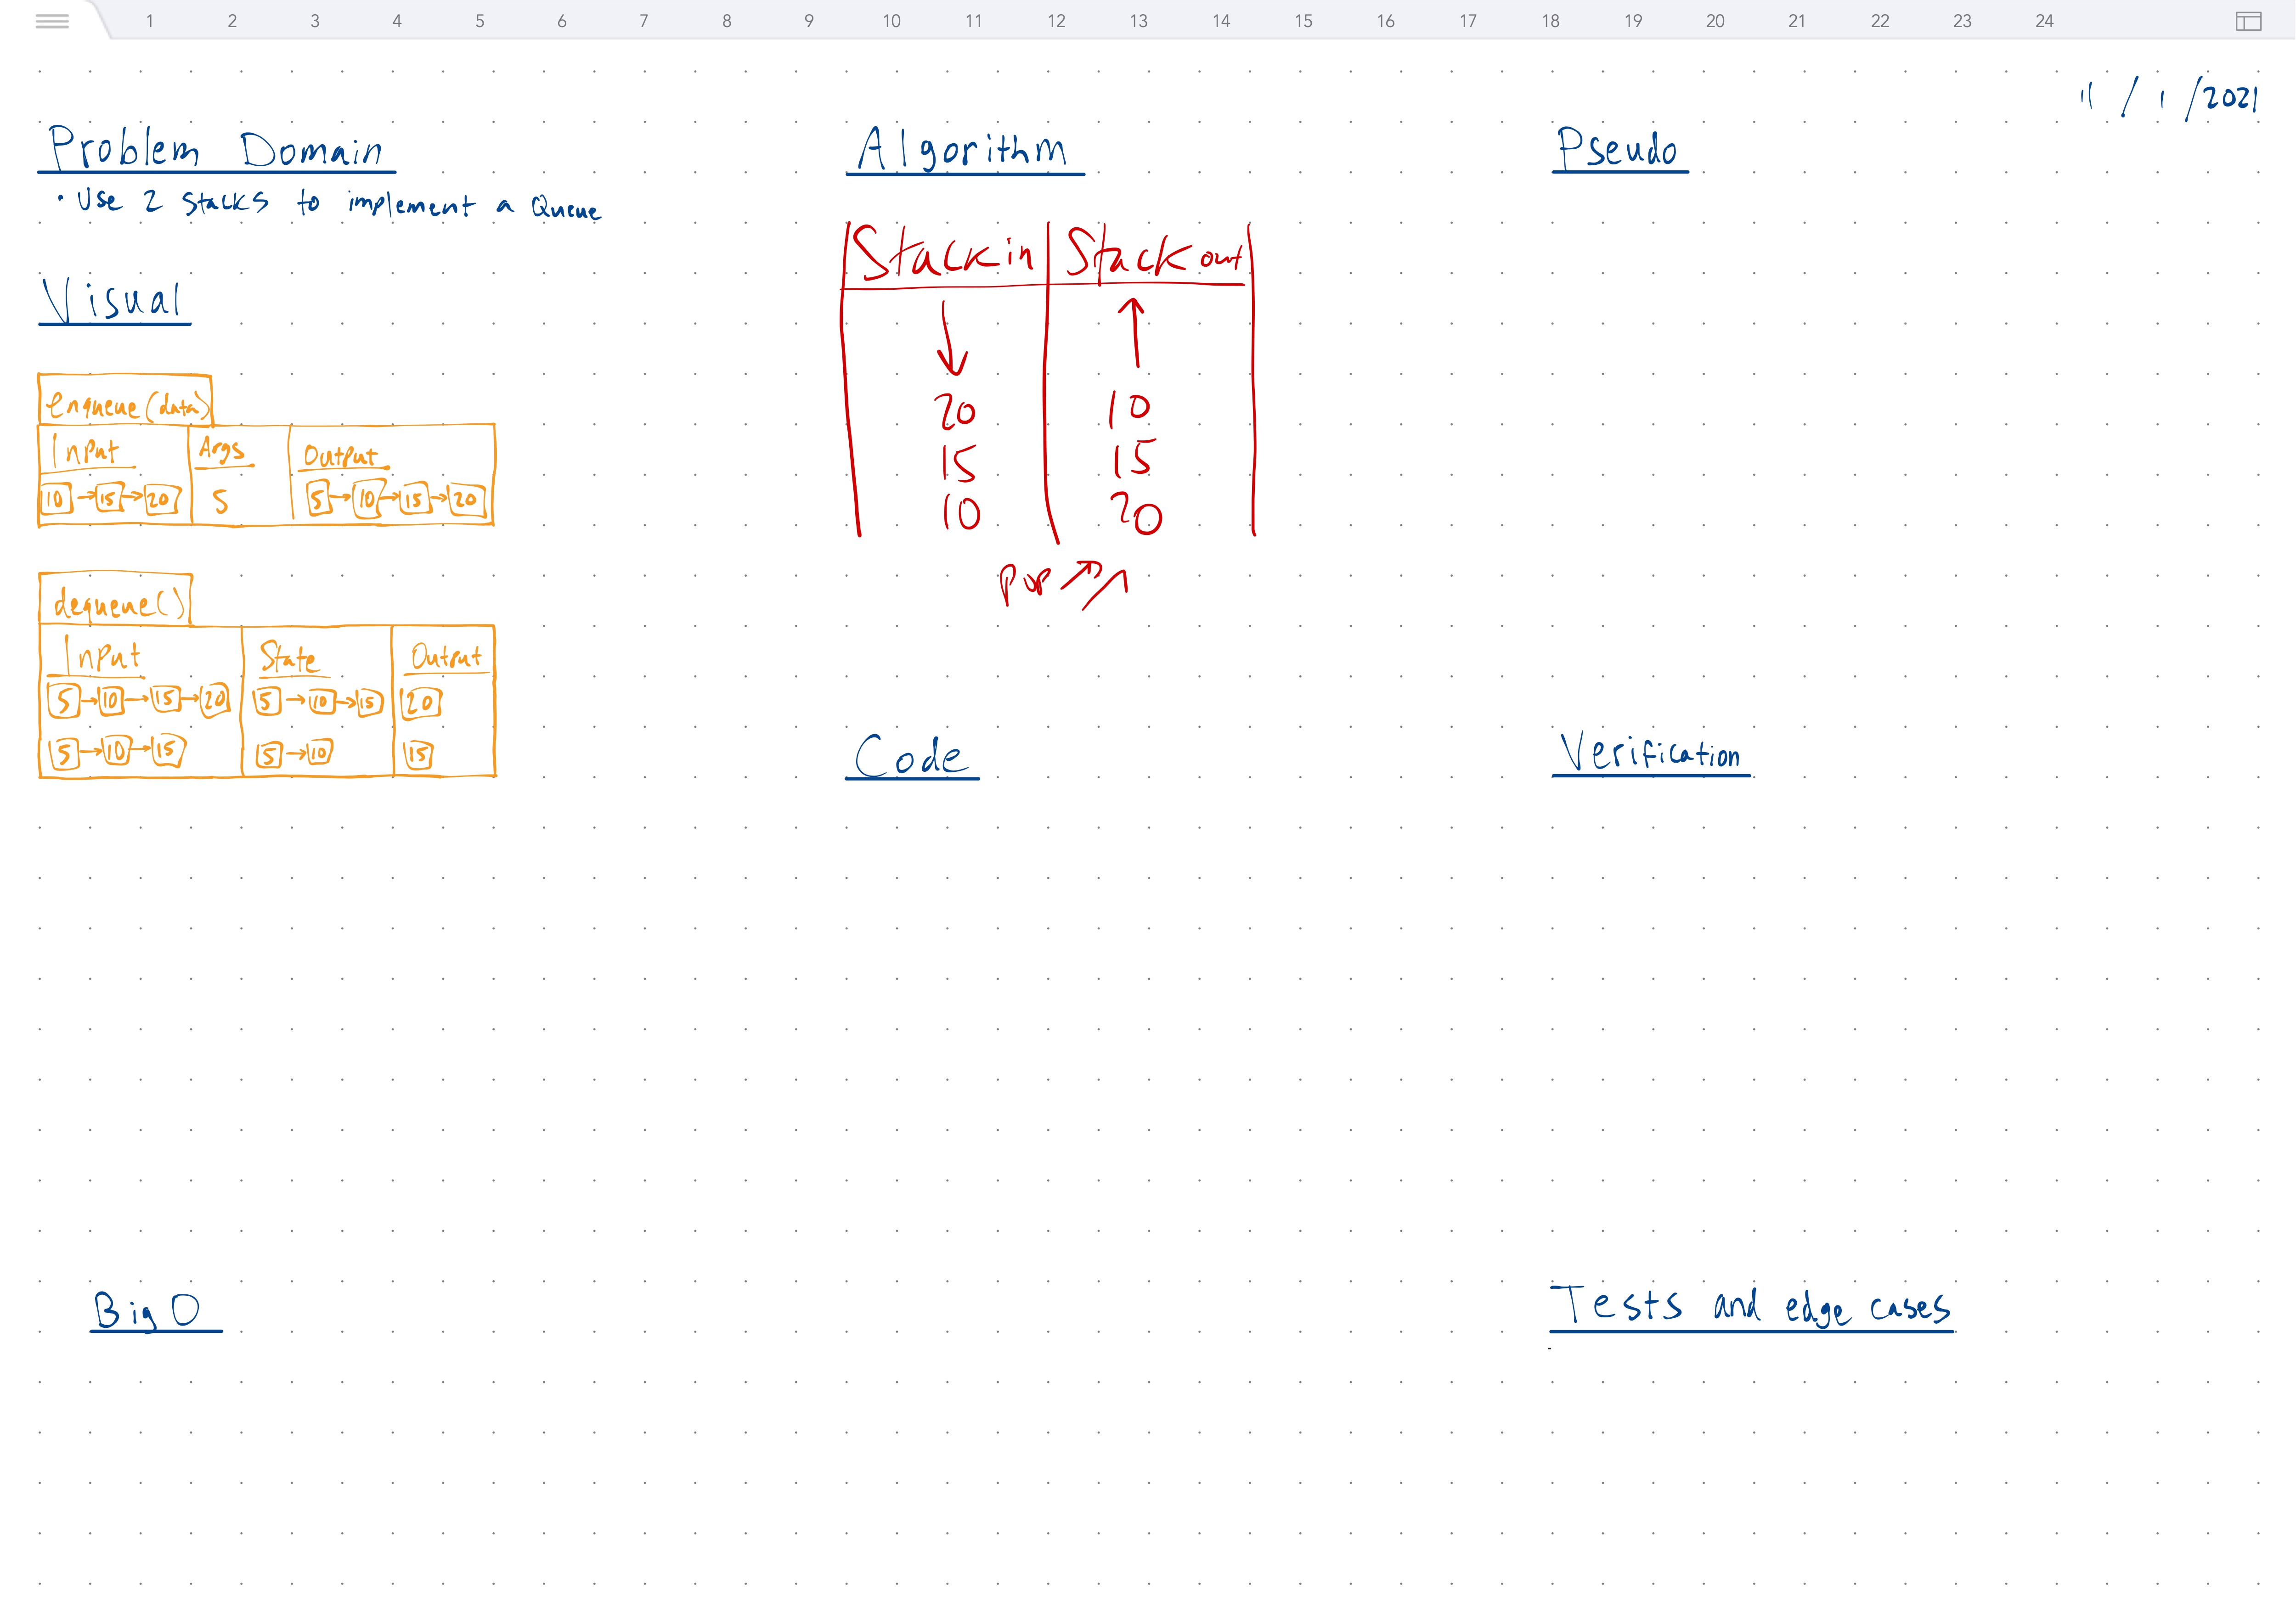 1 2 3 4 5 6 7 8 9 10 11 12 13 14 15 16 17 18 19 20 21 22 23 24
11/1/2021
Problem Domain
• Use 2 stacks to implement a Queue
Visual
enqueue(data)
Input Args Output
10 → 15 → 20 5 5 → 10 → 15 → 20
dequeue()
Input State Output
5 → 10 → 15 → 20 5 → 10 → 15 20
5 → 10 → 15 5 → 10 15
Big O
Algorithm
Stack in Stack out
20 10
15 15
10 20
Pop
Code
Pseudo
Verification
Tests and edge cases